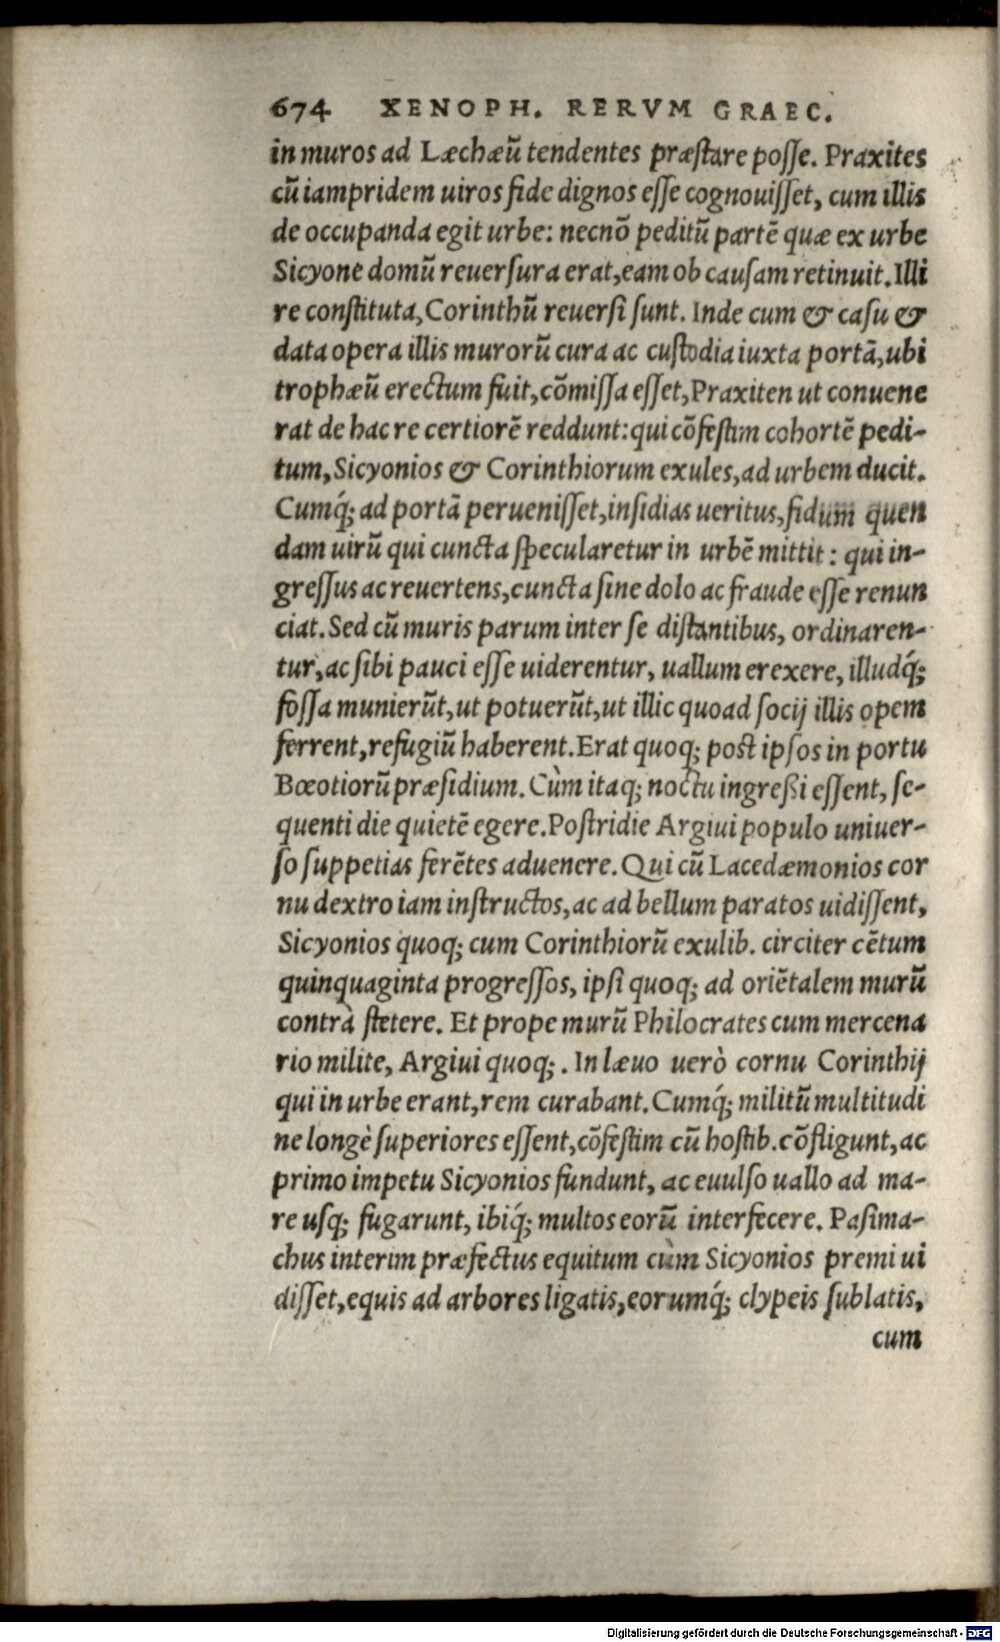 674 XENOPH. RERVM GRAEC.
in muros ad Læchæũ tendentes præstare posse. Praxites
cũ iampridem uiros fide dignos esse cognouisset, cum illis
de occupanda egit urbe: necnõ peditũ partẽ quæ ex urbe
Sicyone domũ reuersura erat, eam ob causam retinuit. Illi
re constituta, Corinthũ reuersi sunt. Inde cum & casu &
data opera illis murorũ cura ac custodia iuxta portã, ubi
trophæũ erectum fuit, cõmissa esset, Praxiten ut conuene
rat de hac re certiorẽ reddunt: qui cõfestim cohortẽ pedi-
tum, Sicyonios & Corinthiorum exules, ad urbem ducit.
Cumq́; ad portã peruenisset, insidias ueritus, fidum quen
dam uirũ qui cuncta specularetur in urbẽ mittit: qui in-
gressus ac reuertens, cuncta sine dolo ac fraude esse renun
ciat. Sed cũ muris parum inter se distantibus, ordinaren-
tur, ac sibi pauci esse uiderentur, uallum erexere, illudq́;
fossa munierũt, ut potuerũt, ut illic quoad socij illis opem
ferrent, refugiũ haberent. Erat quoq; post ipsos in portu
Bœotiorũ præsidium. Cùm itaq; noctu ingreßi essent, se-
quenti die quietẽ egere. Postridie Argiui populo uniuer-
so suppetias ferẽtes aduenere. Qui cũ Lacedæmonios cor
nu dextro iam instructos, ac ad bellum paratos uidissent,
Sicyonios quoq; cum Corinthiorũ exulib. circiter cẽtum
quinquaginta progressos, ipsi quoq; ad oriẽtalem murũ
contrà stetere. Et prope murũ Philocrates cum mercena
rio milite, Argiui quoq;. In læuo uerò cornu Corinthij
qui in urbe erant, rem curabant. Cumq́; militũ multitudi
ne longè superiores essent, cõfestim cũ hostib. cõfligunt, ac
primo impetu Sicyonios fundunt, ac euulso uallo ad ma-
re usq; fugarunt, ibiq́; multos eorũ interfecere. Pasima-
chus interim præfectus equitum cùm Sicyonios premi ui
disset, equis ad arbores ligatis, eorumq́; clypeis sublatis,
cum
Digitalisierung gefördert durch die Deutsche Forschungsgemeinschaft - DFG